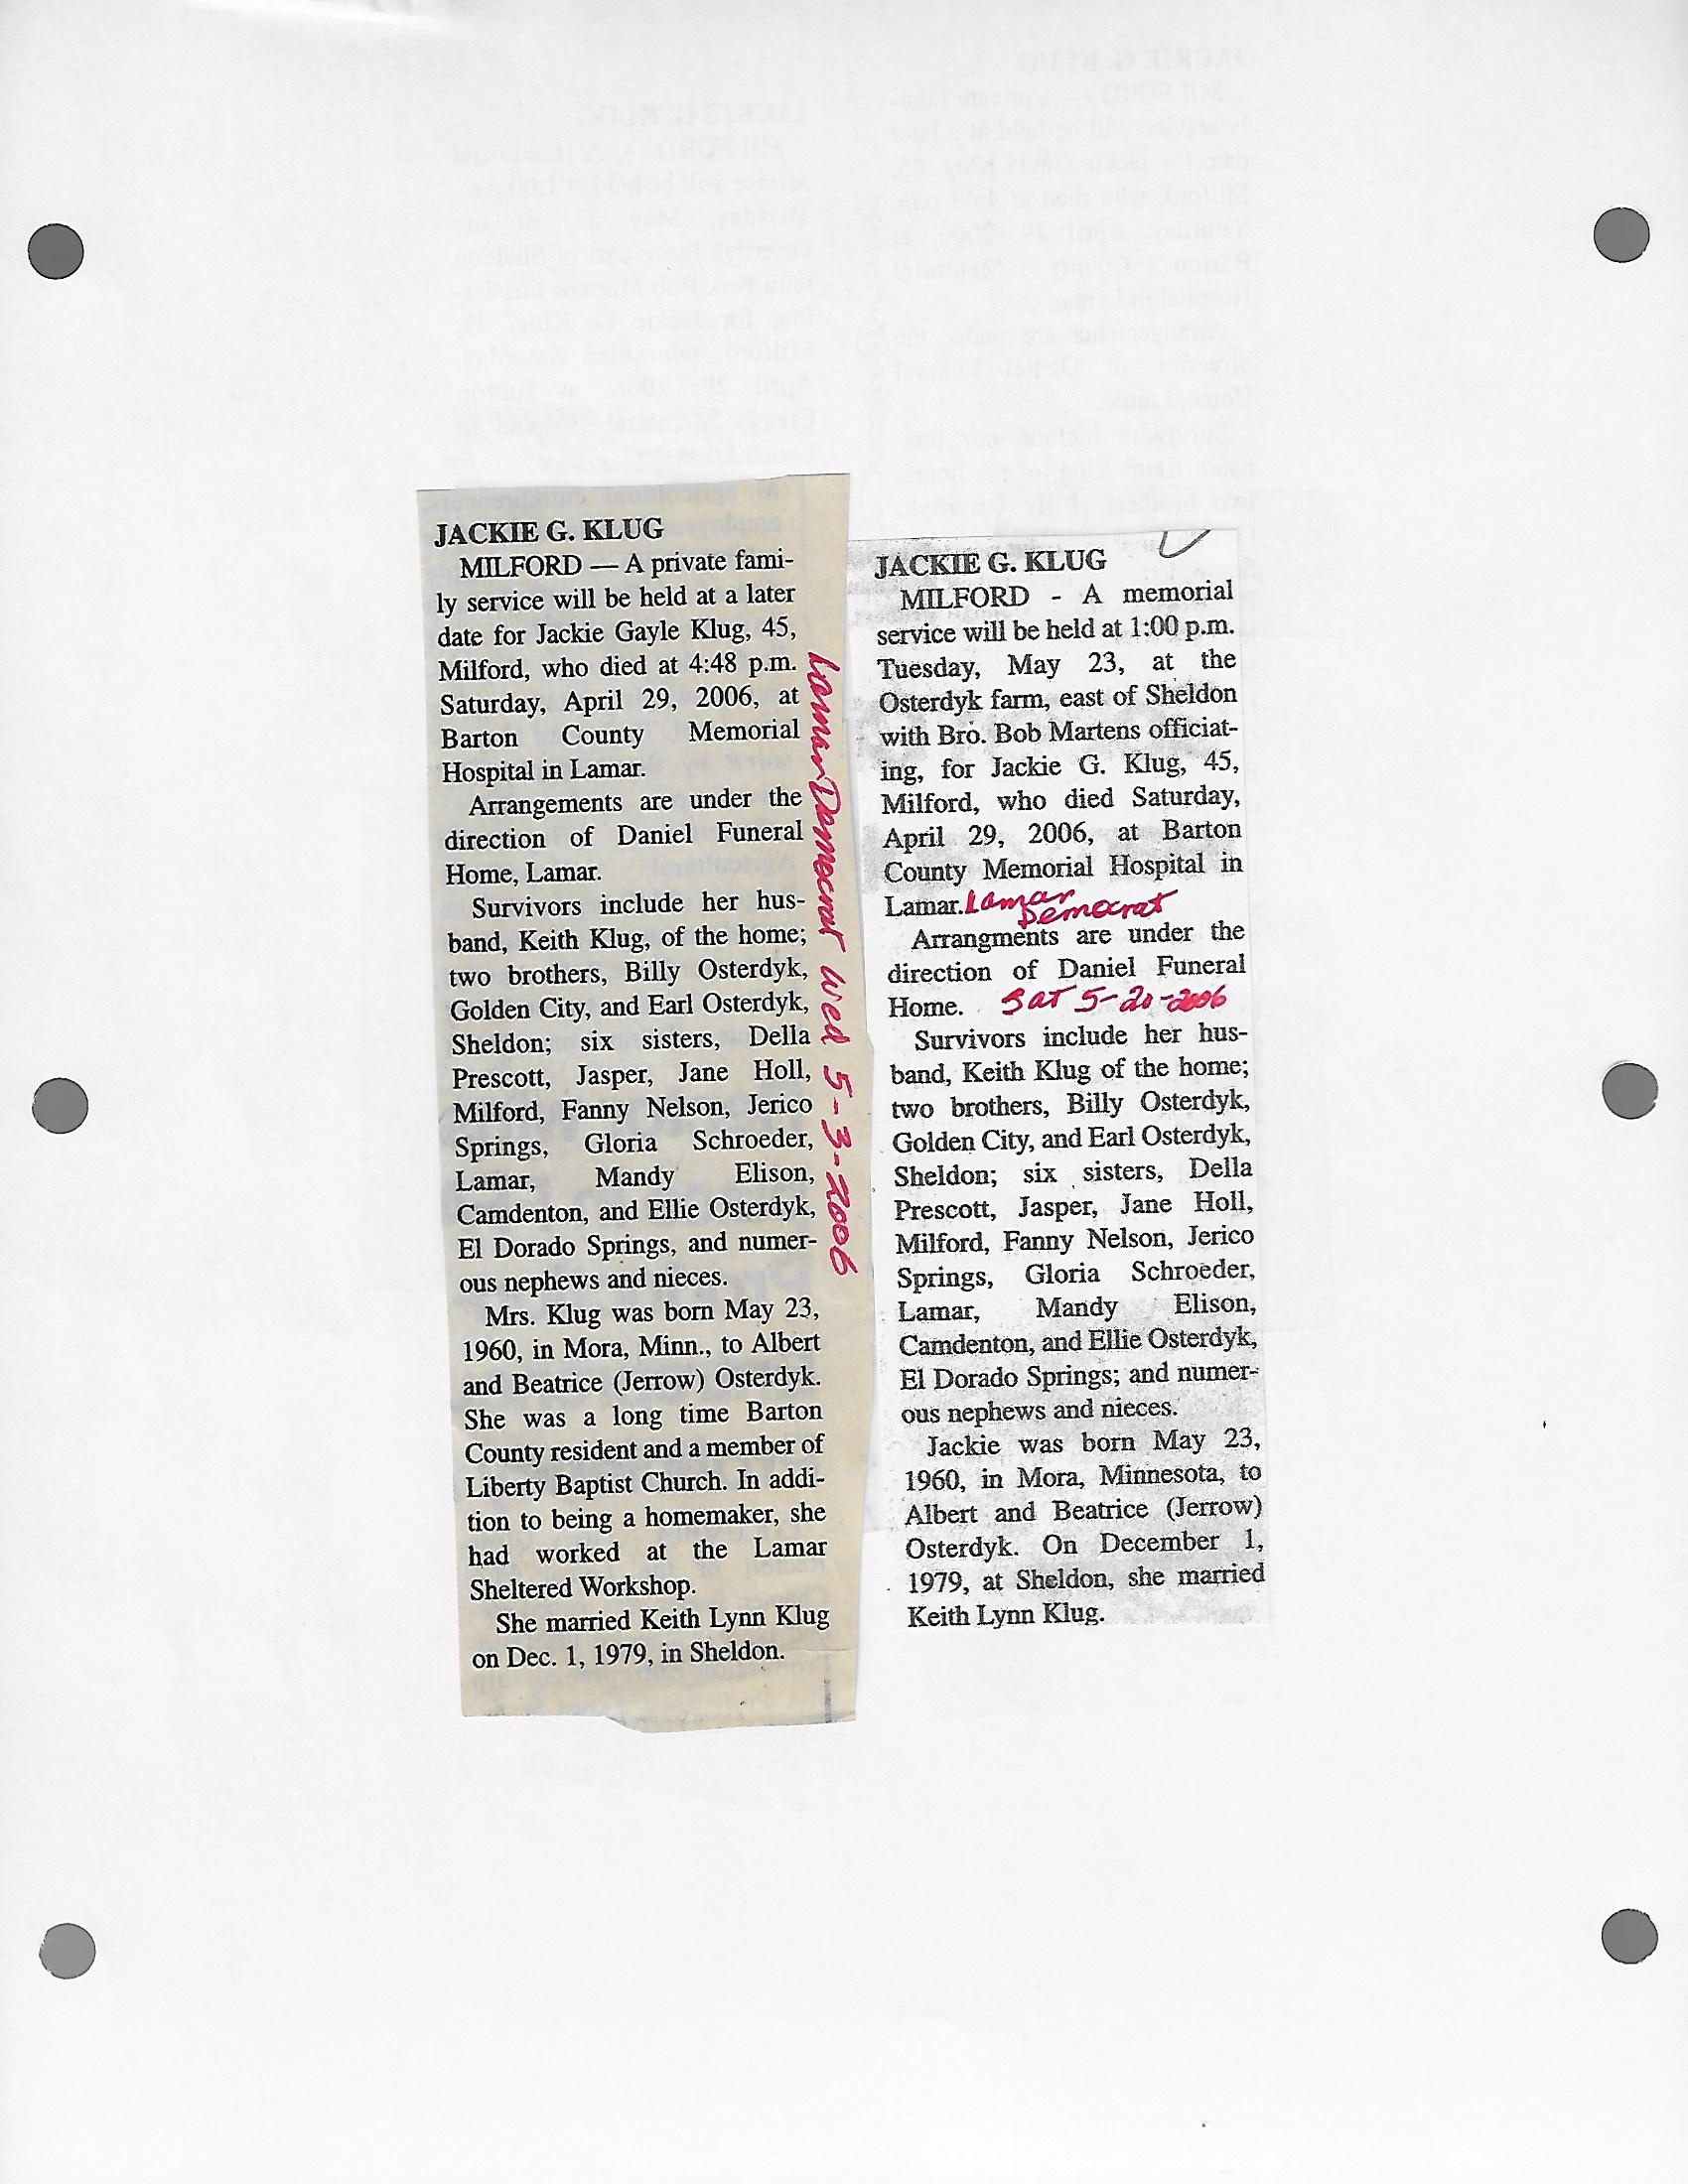 JACKIE G. KLUG
MILFORD — A private fami-
ly service will be held at a later
date for Jackie Gayle Klug, 45,
Milford, who died at 4:48 p.m.
Saturday, April 29, 2006, at
Barton County Memorial
Hospital in Lamar.
Arrangements are under the
direction of Daniel Funeral
Home, Lamar.
Survivors include her hus-
band, Keith Klug, of the home;
two brothers, Billy Osterdyk,
Golden City, and Earl Osterdyk,
Sheldon; six sisters, Della
Prescott, Jasper, Jane Holl,
Milford, Fanny Nelson, Jerico
Springs, Gloria Schroeder,
Lamar, Mandy Elison,
Camdenton, and Ellie Osterdyk,
El Dorado Springs, and numer-
ous nephews and nieces.
Mrs. Klug was born May 23,
1960, in Mora, Minn., to Albert
and Beatrice (Jerrow) Osterdyk.
She was a long time Barton
County resident and a member of
Liberty Baptist Church. In addi-
tion to being a homemaker, she
had worked at the Lamar
Sheltered Workshop.
She married Keith Lynn Klug
on Dec. 1, 1979, in Sheldon.
Lamar Democrat Wed 5-3-2006
JACKIE G. KLUG
MILFORD - A memorial
service will be held at 1:00 p.m.
Tuesday, May 23, at the
Osterdyk farm, east of Sheldon
with Bro. Bob Martens officiat-
ing, for Jackie G. Klug, 45,
Milford, who died Saturday,
April 29, 2006, at Barton
County Memorial Hospital in
Lamar. Lamar
Democrat
Arrangments are under the
direction of Daniel Funeral
Home. Sat 5-20-2006
Survivors include her hus-
band, Keith Klug of the home;
two brothers, Billy Osterdyk,
Golden City, and Earl Osterdyk,
Sheldon; six sisters, Della
Prescott, Jasper, Jane Holl,
Milford, Fanny Nelson, Jerico
Springs, Gloria Schroeder,
Lamar, Mandy Elison,
Camdenton, and Ellie Osterdyk,
El Dorado Springs; and numer-
ous nephews and nieces.
Jackie was born May 23,
1960, in Mora, Minnesota, to
Albert and Beatrice (Jerrow)
Osterdyk. On December 1,
1979, at Sheldon, she married
Keith Lynn Klug.